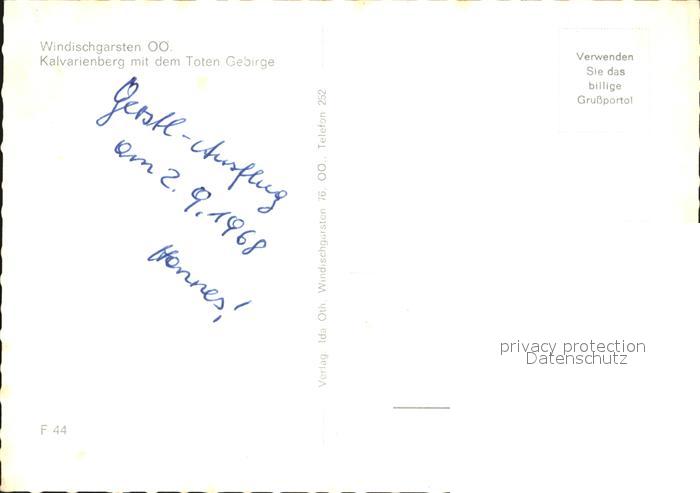 Windischgarsten OÖ.
Kalvarienberg mit dem Toten Gebirge
Gerstl-Ausflug
am 2. 9. 1968
Hannes!
F 44
Verlag Ida Oth, Windischgarsten 76, OÖ., Telefon 252
Verwenden
Sie das
billige
Grußporto!
privacy protection
Datenschutz